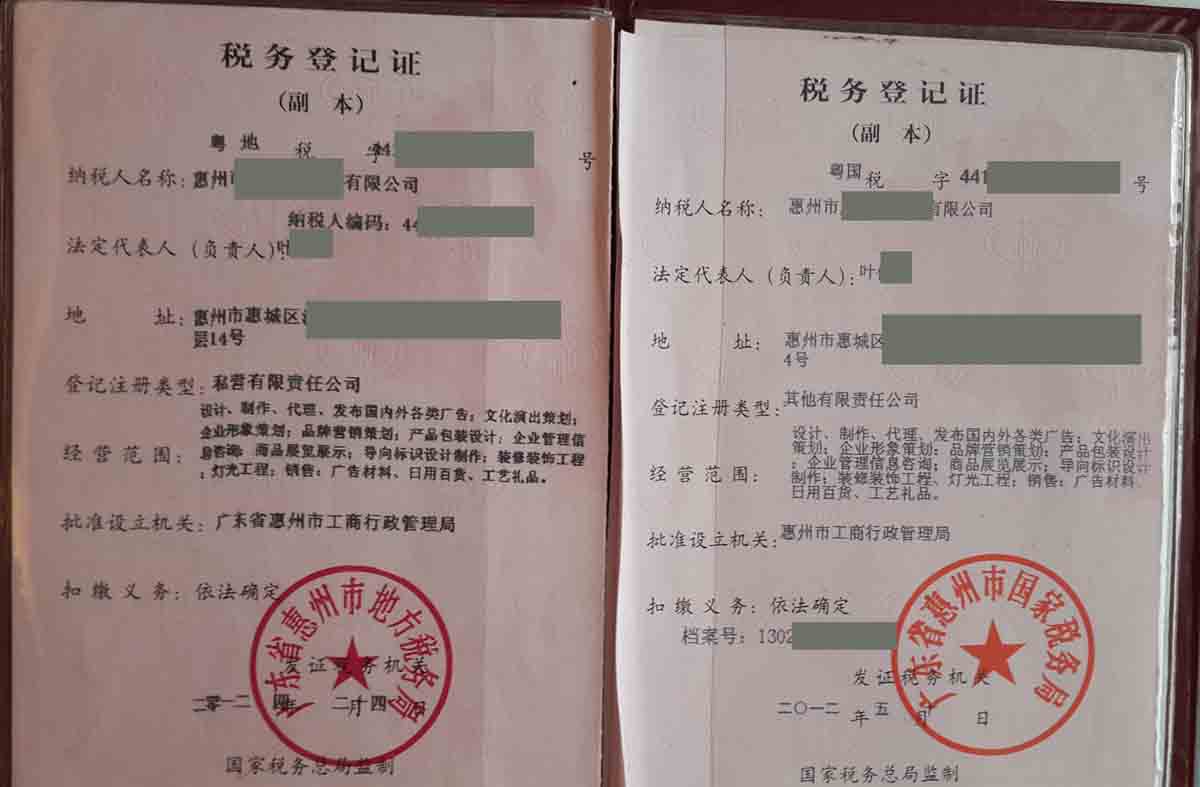 税务登记证
(副 本)
粤 地 税 字 号
纳税人名称: 惠州 有限公司
纳税人编码: 44
法定代表人 (负责人): 叶
地 址: 惠州市惠城区
层14号
登记注册类型: 私营有限责任公司
经营范围: 设计、制作、代理、发布国内外各类广告; 文化演出策划;
企业形象策划; 品牌营销策划; 产品包装设计; 企业管理信
息咨询; 商品展览展示; 导向标识设计制作; 装修装饰工程
, 灯光工程; 销售: 广告材料、日用百货、工艺礼品。
批准设立机关: 广东省惠州市工商行政管理局
扣缴义务: 依法确定
广东省惠州市地方税务局
发证税务机关
二零一二 年 月 日
国家税务总局监制
税务登记证
(副 本)
粤国 税 字 441 号
纳税人名称: 惠州市 有限公司
法定代表人 (负责人): 叶
地 址: 惠州市惠城区
4号
登记注册类型: 其他有限责任公司
经营范围: 设计、制作、代理、发布国内外各类广告; 文化演出
策划; 企业形象策划; 品牌营销策划; 产品包装设计
; 企业管理信息咨询; 商品展览展示; 导向标识设计
制作; 装修装饰工程、灯光工程; 销售: 广告材料、
日用百货、工艺礼品。
批准设立机关: 惠州市工商行政管理局
扣缴义务: 依法确定
档案号: 1302
广东省惠州市国家税务局
发证税务机关
二〇一二 年 五 月 日
国家税务总局监制